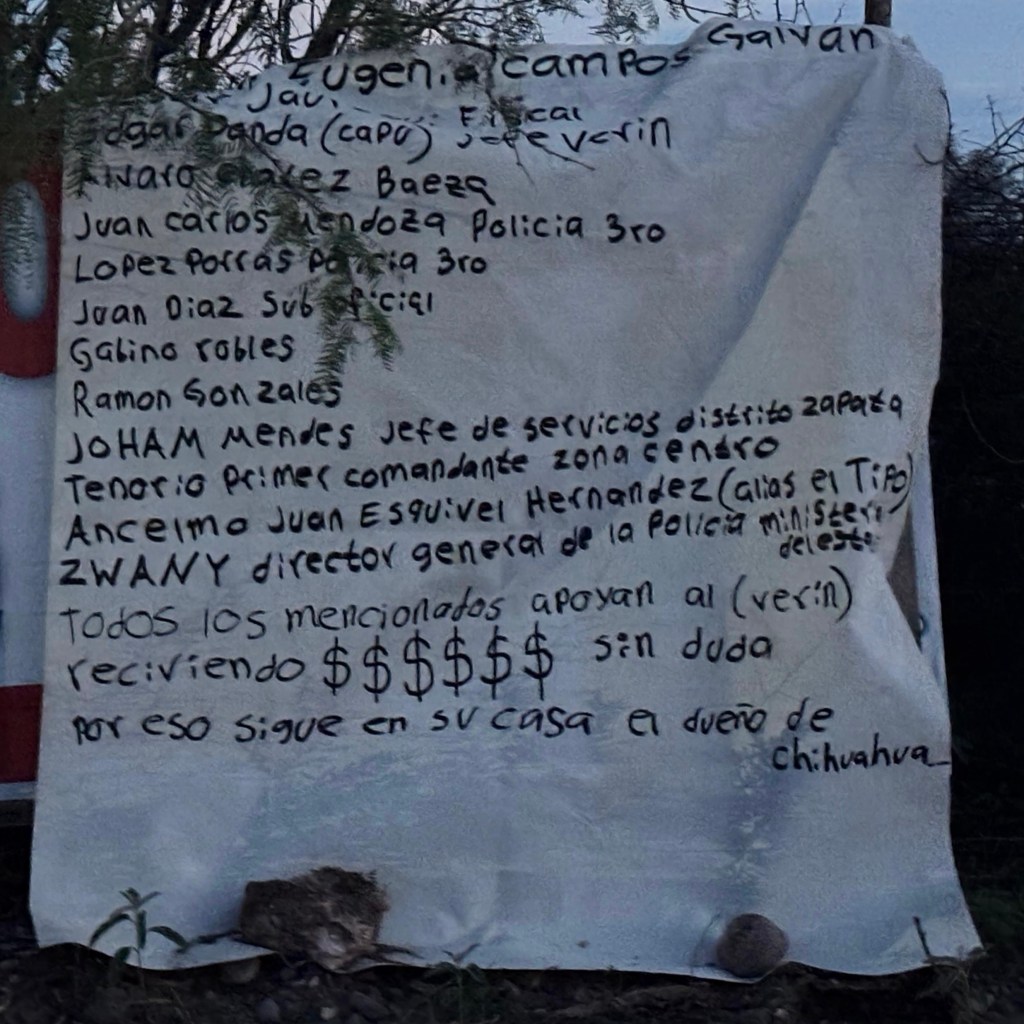 Eugenia campos Galvan
Javi Fiscal
Edgar Panda (capu) Jefe verin
Alvaro chavez Baeza
Juan carlos Mendoza Policia 3ro
Lopez Porras Policia 3ro
Juan Diaz Sub oficial
Gabino robles
Ramon Gonzales
JOHAM Mendes Jefe de servicios distrito zapata
Tenorio primer comandante zona centro
Ancelmo Juan Esquivel Hernandez (alias el Tipo)
ZWANY director general de la Policia
del
Todos los mencionados apoyan al (verin)
reciviendo $ $ $ $ $ $ sin duda
por eso sigue en su casa el dueño de
chihuahua